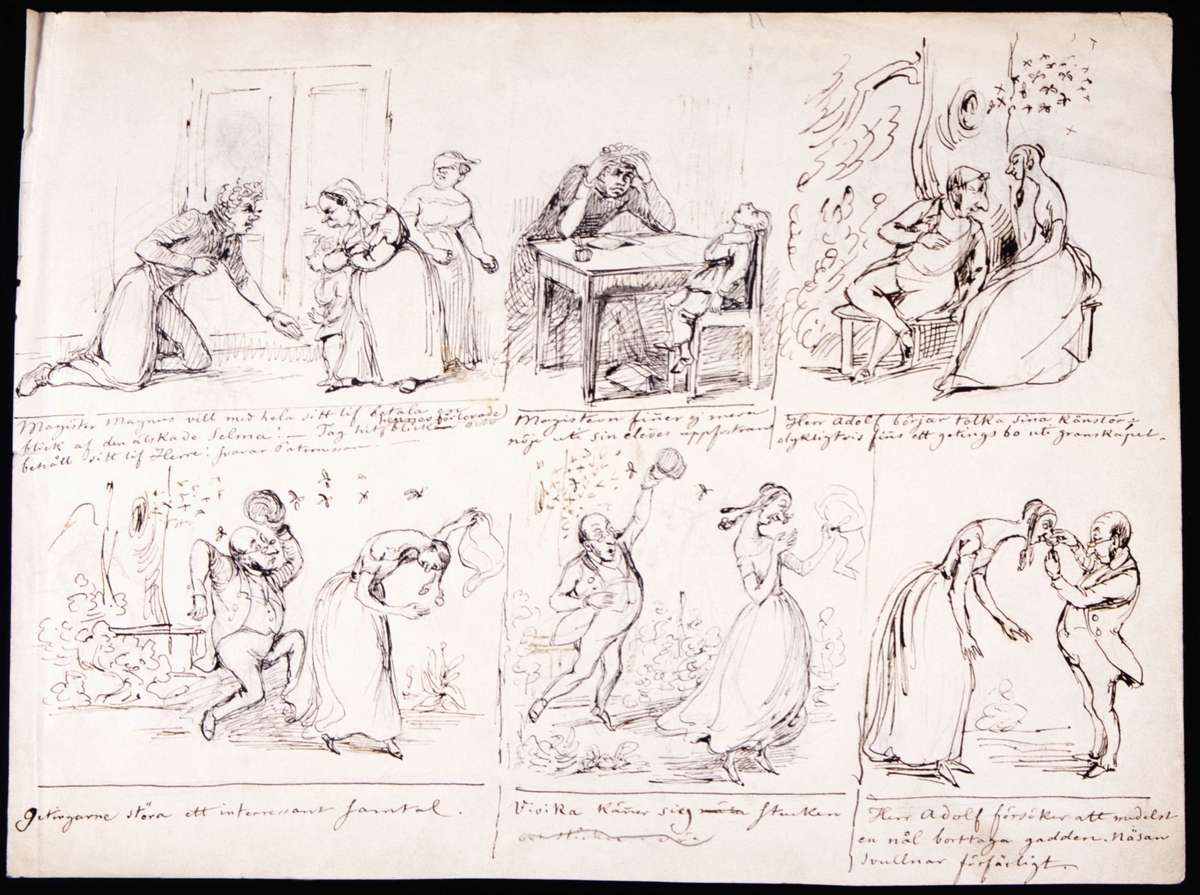 Magister Magnus vill med hela sitt lif betala en
blick af den älskade Selma! — Tag hit
behåll sitt lif Herre! svarar Patronessan
Magistern finner ej mera
nöje uti sin elèves uppfostran
Herr Adolf börjar tolka sina känslor;
olykligtvis fins ett getings bo uti granskapet.
Getingarne störa ett interressant samtal.
Vivika känner sig stucken
Herr Adolf försöker att medelst
en nål borttaga gadden. Näsan
svullnar förfärligt.